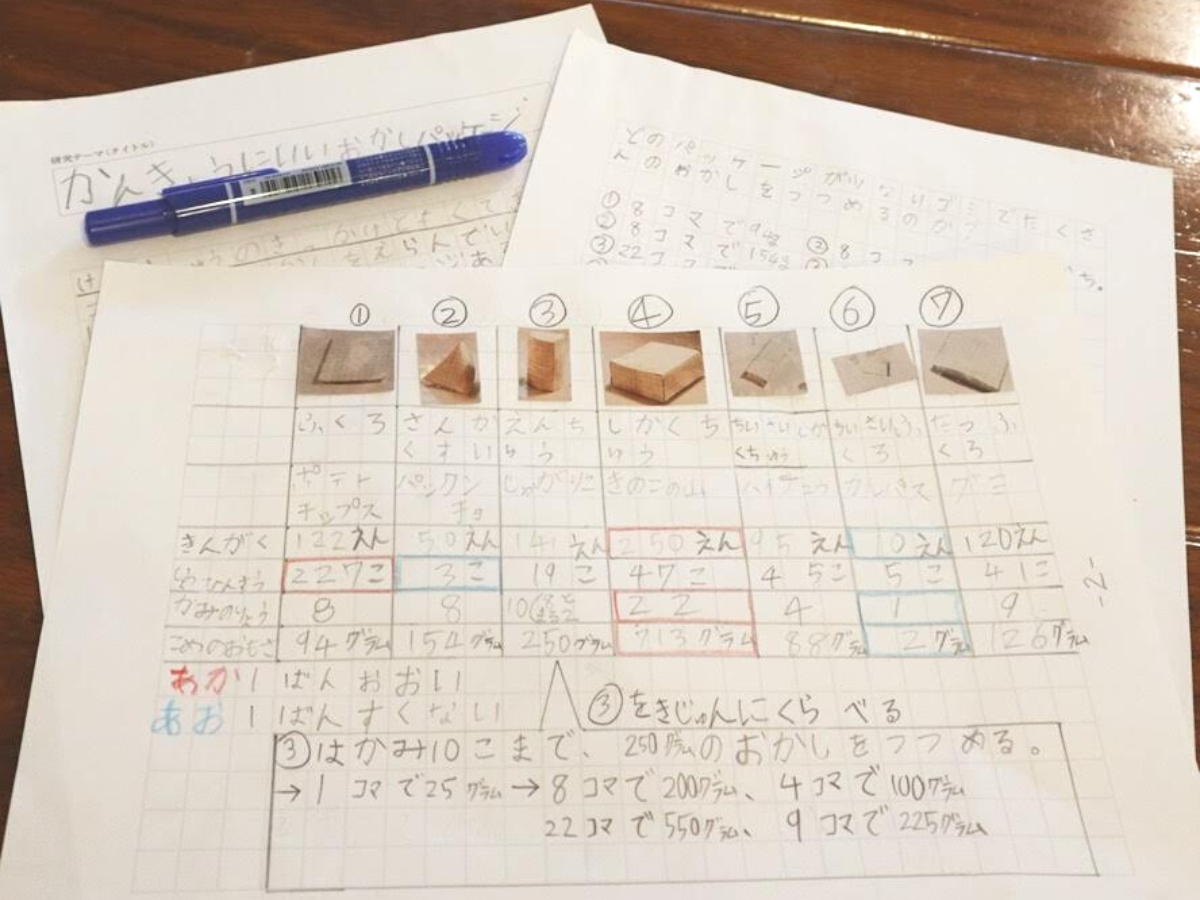 研究テーマ(タイトル)
かんきょうにいいおかしパッケージ
どのパッケージがすくないゴミでたくさ
んのおかしをつつめるのか?
① 8コマで94g
② 8コマで
③ 22コマで154g
① ② ③ ④ ⑤ ⑥ ⑦
ふくろ さんかくすい えんちゅう しかくちゅう ちいさいしかくちゅう ちいさいふくろ たつふくろ
ポテトチップス パックンチョ じゃがりこ きのこの山 ハイチュウ グミ
きんがく 122えん 50えん 141えん 250えん 95えん 10えん 120えん
227こ 3こ 19こ 47こ 45こ 5こ 41こ
かみのりょう 8 8 10 22 4 1 9
こめのおもさ 94グラム 154グラム 250グラム 713グラム 88グラム 2グラム 126グラム
あか 1ばんおおい
あお 1ばんすくない
③をきじゅんにくらべる
③はかみ10こまで、250グラムのおかしをつつめる。
→1コマで25グラム→8コマで200グラム、4コマで100グラム
22コマで550グラム、9コマで225グラム
-2-